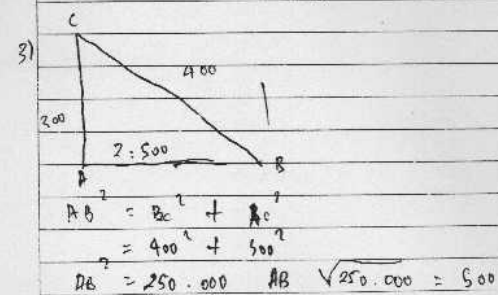 C
3)
400
300
2:500
A
B
AB² = BC² + AC²
= 400² + 300²
AB² = 250.000 AB √250.000 = 500